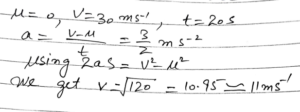 u = 0, V = 30 ms⁻¹, t = 20s
a = (v-u)/t = 3/2 ms⁻²
using 2as = v² - u²
we get v = √120 = 10.95 ≃ 11ms⁻¹